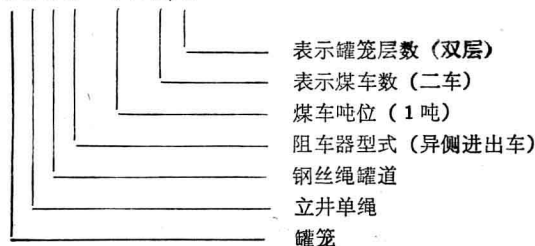 表示罐笼层数（双层）
表示煤车数（二车）
煤车吨位（1吨）
阻车器型式（异侧进出车）
钢丝绳罐道
立井单绳
罐笼